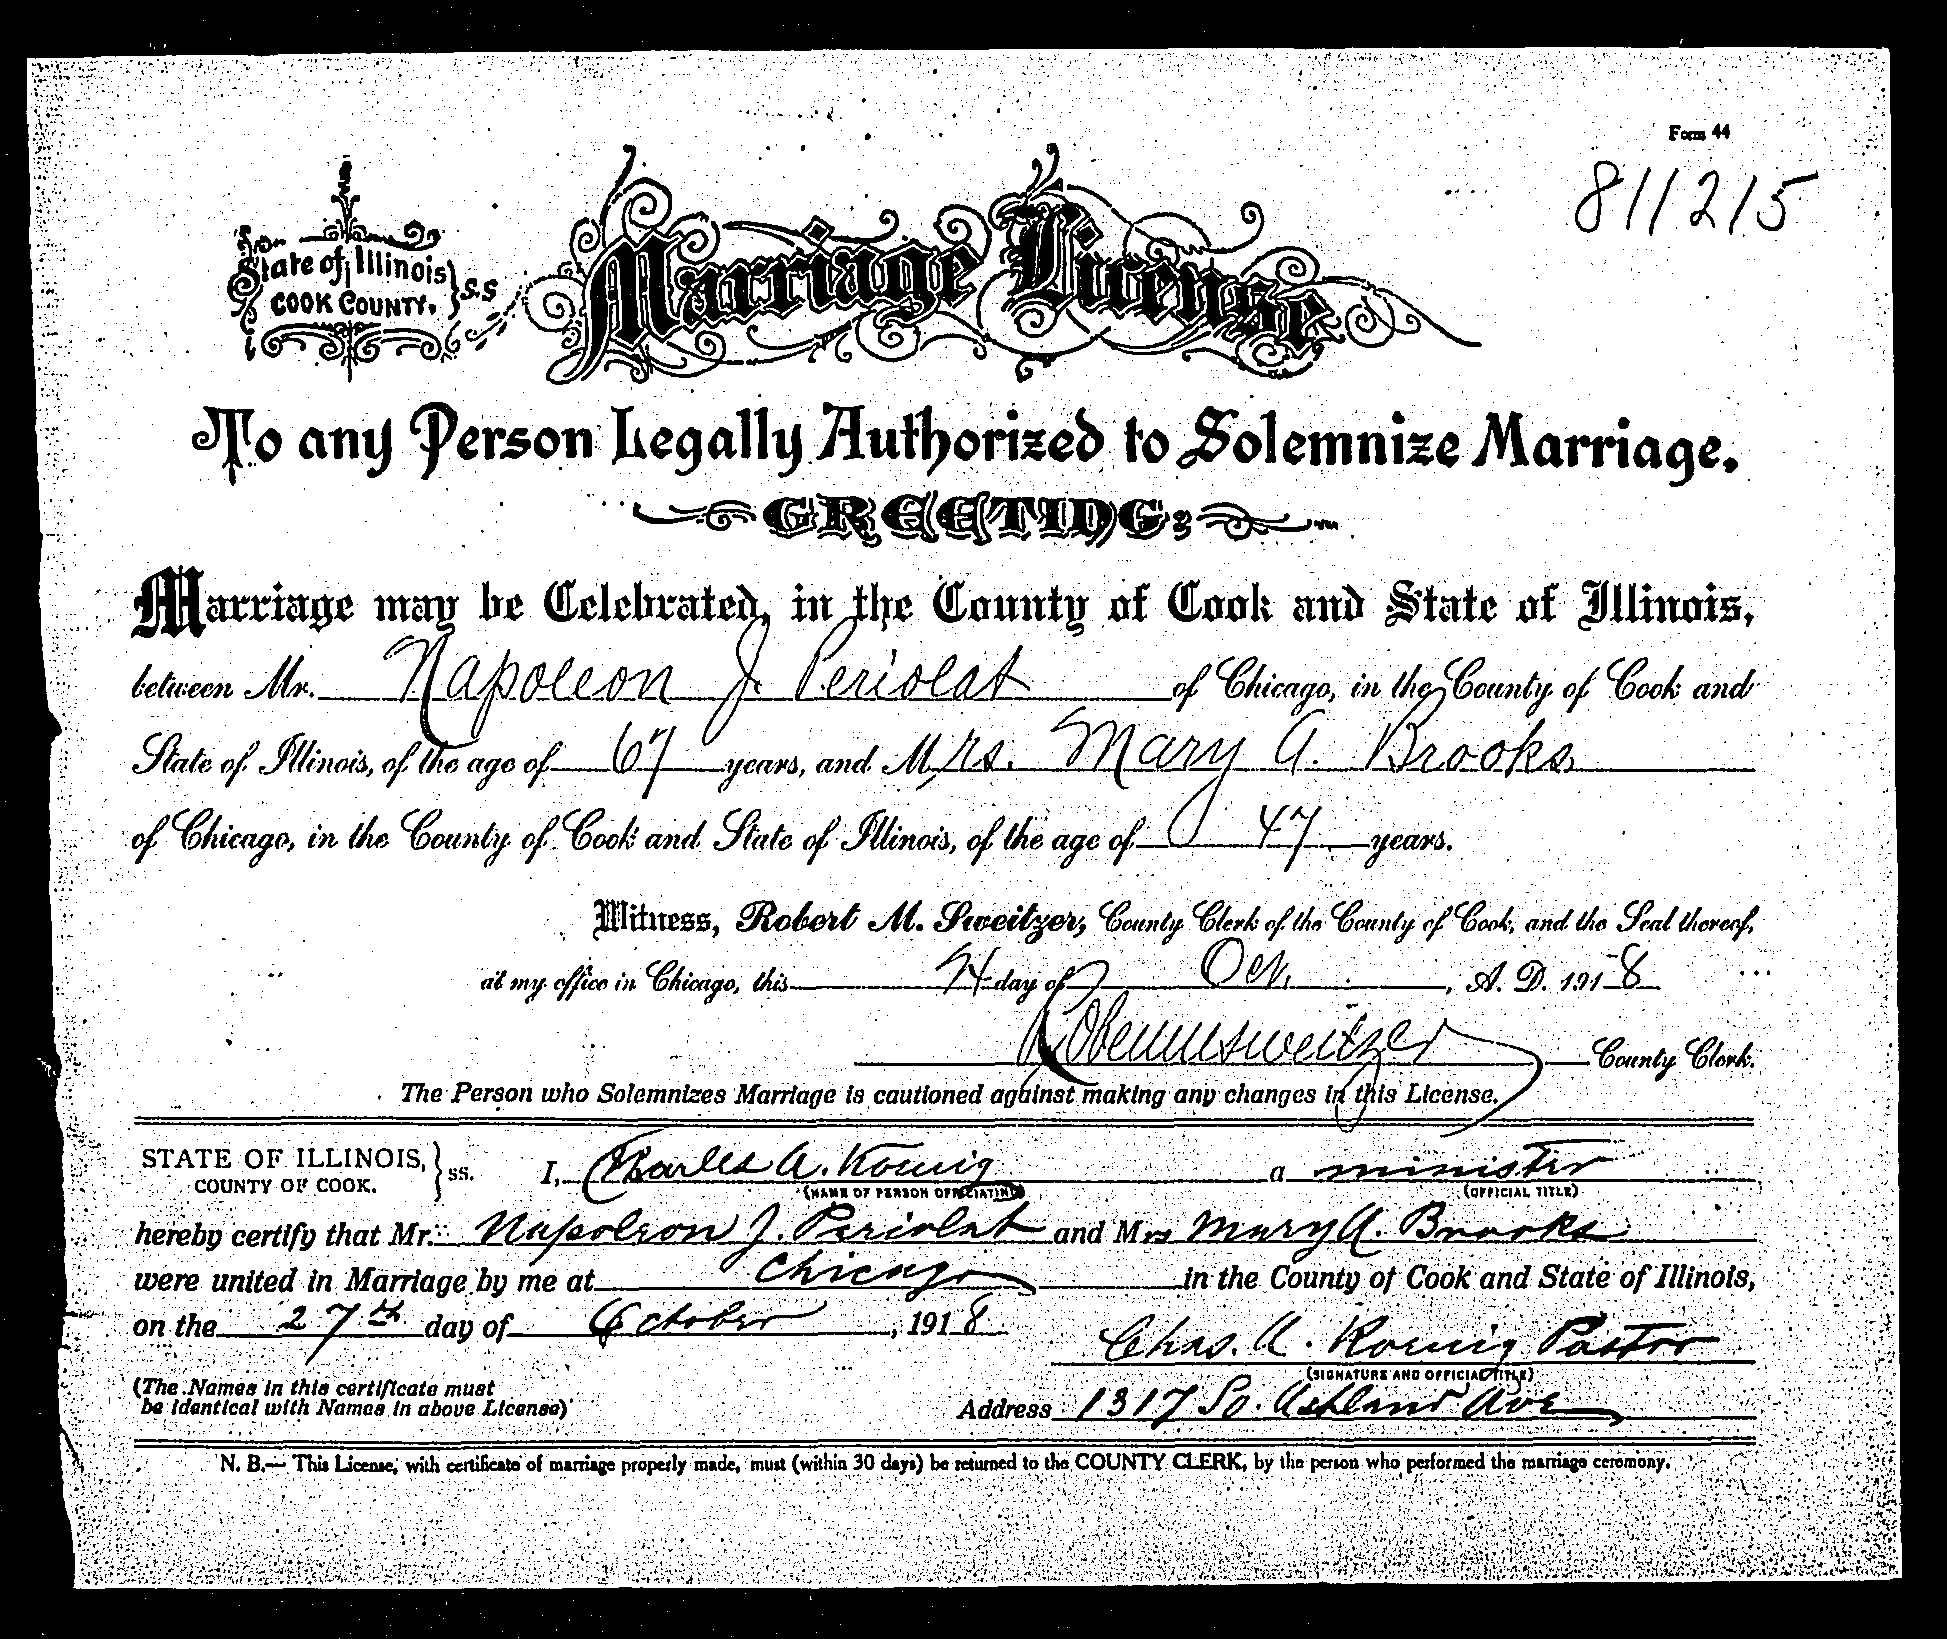 Form 44
811215
State of Illinois } S.S
COOK COUNTY.
Marriage License
To any Person Legally Authorized to Solemnize Marriage.
GREETING:
Marriage may be Celebrated, in the County of Cook and State of Illinois,
between Mr. Napoleon J. Periolat of Chicago, in the County of Cook and
State of Illinois, of the age of 67 years, and Mrs. Mary A. Brooks
of Chicago, in the County of Cook and State of Illinois, of the age of 47 years.
Witness, Robert M. Sweitzer, County Clerk of the County of Cook, and the Seal thereof,
at my office in Chicago, this 24 day of Oct. , A. D. 1918
Robert M Sweitzer County Clerk.
The Person who Solemnizes Marriage is cautioned against making any changes in this License.
STATE OF ILLINOIS, } ss. I, Charles A. Koenig a minister
COUNTY OF COOK. (NAME OF PERSON OFFICIATING) (OFFICIAL TITLE)
hereby certify that Mr. Napoleon J. Periolat and Mrs Mary A. Brooks
were united in Marriage by me at Chicago in the County of Cook and State of Illinois,
on the 27th day of October , 1918
Chas. A. Koenig Pastor
(SIGNATURE AND OFFICIAL TITLE)
(The Names in this certificate must
be identical with Names in above License)
Address 1317 So. Ashland Ave
N. B.— This License, with certificate of marriage properly made, must (within 30 days) be returned to the COUNTY CLERK, by the person who performed the marriage ceremony.